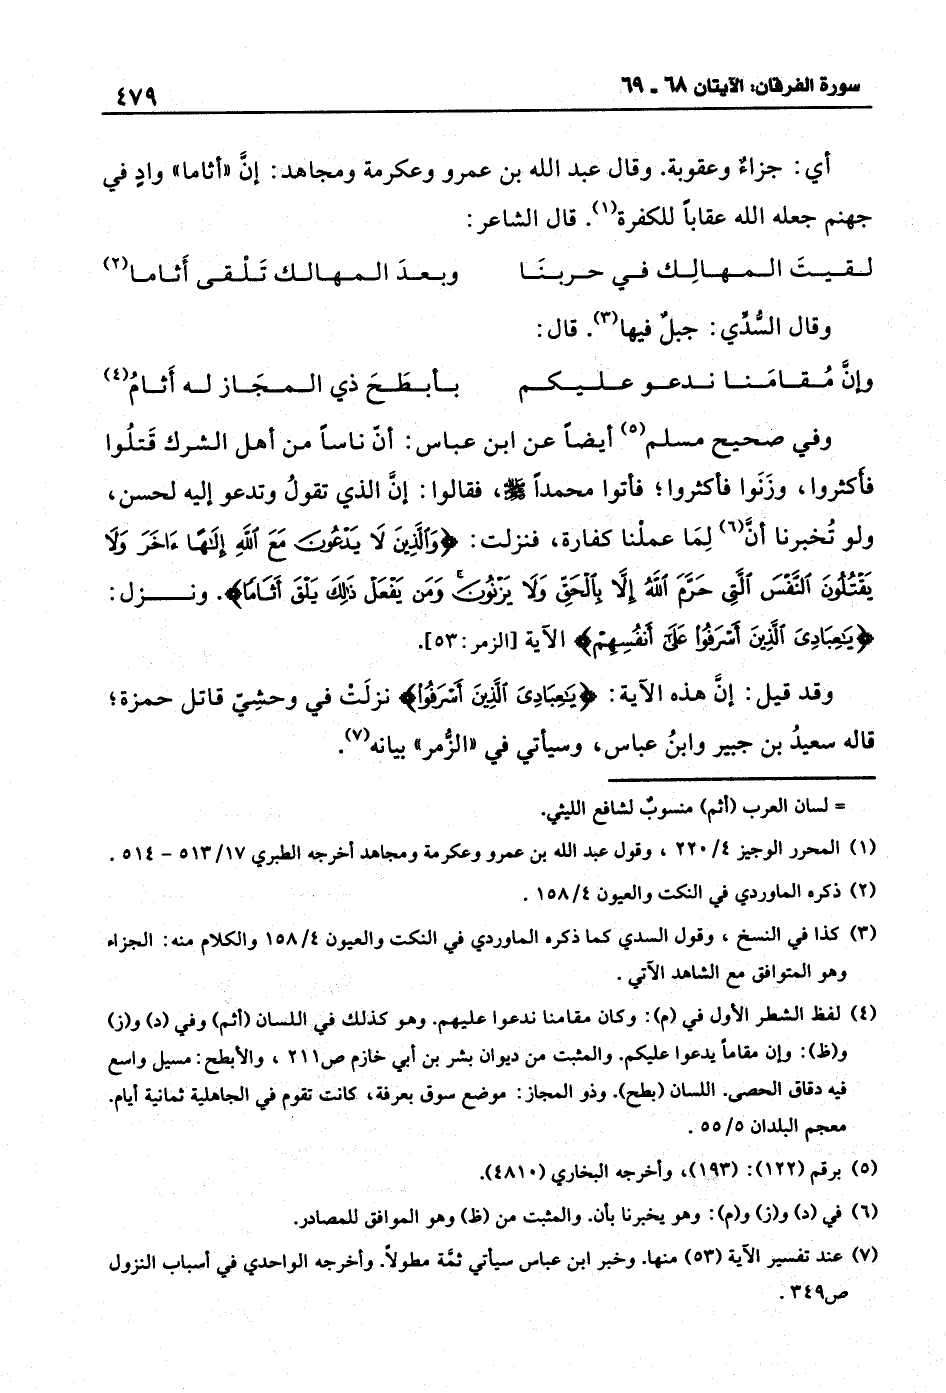 سورة الفرقان: الآيتان ٦٨ ـ ٦٩
٤٧٩
أي: جزاءٌ وعقوبة. وقال عبد الله بن عمرو وعكرمة ومجاهد: إنَّ «أثاما» وادٍ في
جهنم جعله الله عقاباً للكفرة(١). قال الشاعر:
لقيتَ المهالِك في حربنَا وبعدَ المهالك تَلْقى أَثاما(٢)
وقال السُّدِّي: جبلٌ فيها(٣). قال:
وإنَّ مُقامَنا ندعو عليكم بأبطَحَ ذي المجَاز له أَثامُ(٤)
وفي صحيح مسلم(٥) أيضاً عن ابن عباس: أنّ ناساً من أهل الشرك قَتلُوا
فأكثروا، وزَنَوا فأكثروا؛ فأتوا محمداً ﷺ، فقالوا: إنَّ الذي تقولُ وتدعو إليه لحسن،
ولو تُخبرنا أنَّ(٦) لِمَا عملْنا كفارة، فنزلت: ﴿وَٱلَّذِينَ لَا يَدْعُونَ مَعَ ٱللَّهِ إِلَٰهًا ءَاخَرَ وَلَا
يَقْتُلُونَ ٱلنَّفْسَ ٱلَّتِي حَرَّمَ ٱللَّهُ إِلَّا بِٱلْحَقِّ وَلَا يَزْنُونَۚ وَمَن يَفْعَلْ ذَٰلِكَ يَلْقَ أَثَامًا﴾. ونزل:
﴿يَٰعِبَادِىَ ٱلَّذِينَ أَسْرَفُواْ عَلَىٰٓ أَنفُسِهِمْ﴾ الآية [الزمر:٥٣].
وقد قيل: إنَّ هذه الآية: ﴿يَٰعِبَادِىَ ٱلَّذِينَ أَسْرَفُواْ﴾ نزلَتْ في وحشِيّ قاتل حمزة؛
قاله سعيدُ بن جبير وابنُ عباس، وسيأتي في «الزُّمر» بيانه(٧).
= لسان العرب (أثم) منسوبٌ لشافع الليثي.
(١) المحرر الوجيز ٤/ ٢٢٠ ، وقول عبد الله بن عمرو وعكرمة ومجاهد أخرجه الطبري ١٧/ ٥١٣ - ٥١٤ .
(٢) ذكره الماوردي في النكت والعيون ٤/ ١٥٨ .
(٣) كذا في النسخ ، وقول السدي كما ذكره الماوردي في النكت والعيون ٤/ ١٥٨ والكلام منه: الجزاء
وهو المتوافق مع الشاهد الآتي .
(٤) لفظ الشطر الأول في (م): وكان مقامنا ندعوا عليهم. وهو كذلك في اللسان (أثم) وفي (د) و(ز)
و(ظ): وإن مقاماً يدعوا عليكم. والمثبت من ديوان بشر بن أبي خازم ص٢١١ ، والأبطح: مسيل واسع
فيه دقاق الحصى. اللسان (بطح). وذو المجاز: موضع سوق بعرفة، كانت تقوم في الجاهلية ثمانية أيام.
معجم البلدان ٥/ ٥٥ .
(٥) برقم (١٢٢): (١٩٣)، وأخرجه البخاري (٤٨١٠).
(٦) في (د) و(ز) و(م): وهو يخبرنا بأن. والمثبت من (ظ) وهو الموافق للمصادر.
(٧) عند تفسير الآية (٥٣) منها. وخبر ابن عباس سيأتي ثمَّة مطولاً. وأخرجه الواحدي في أسباب النزول
ص٣٤٩ .